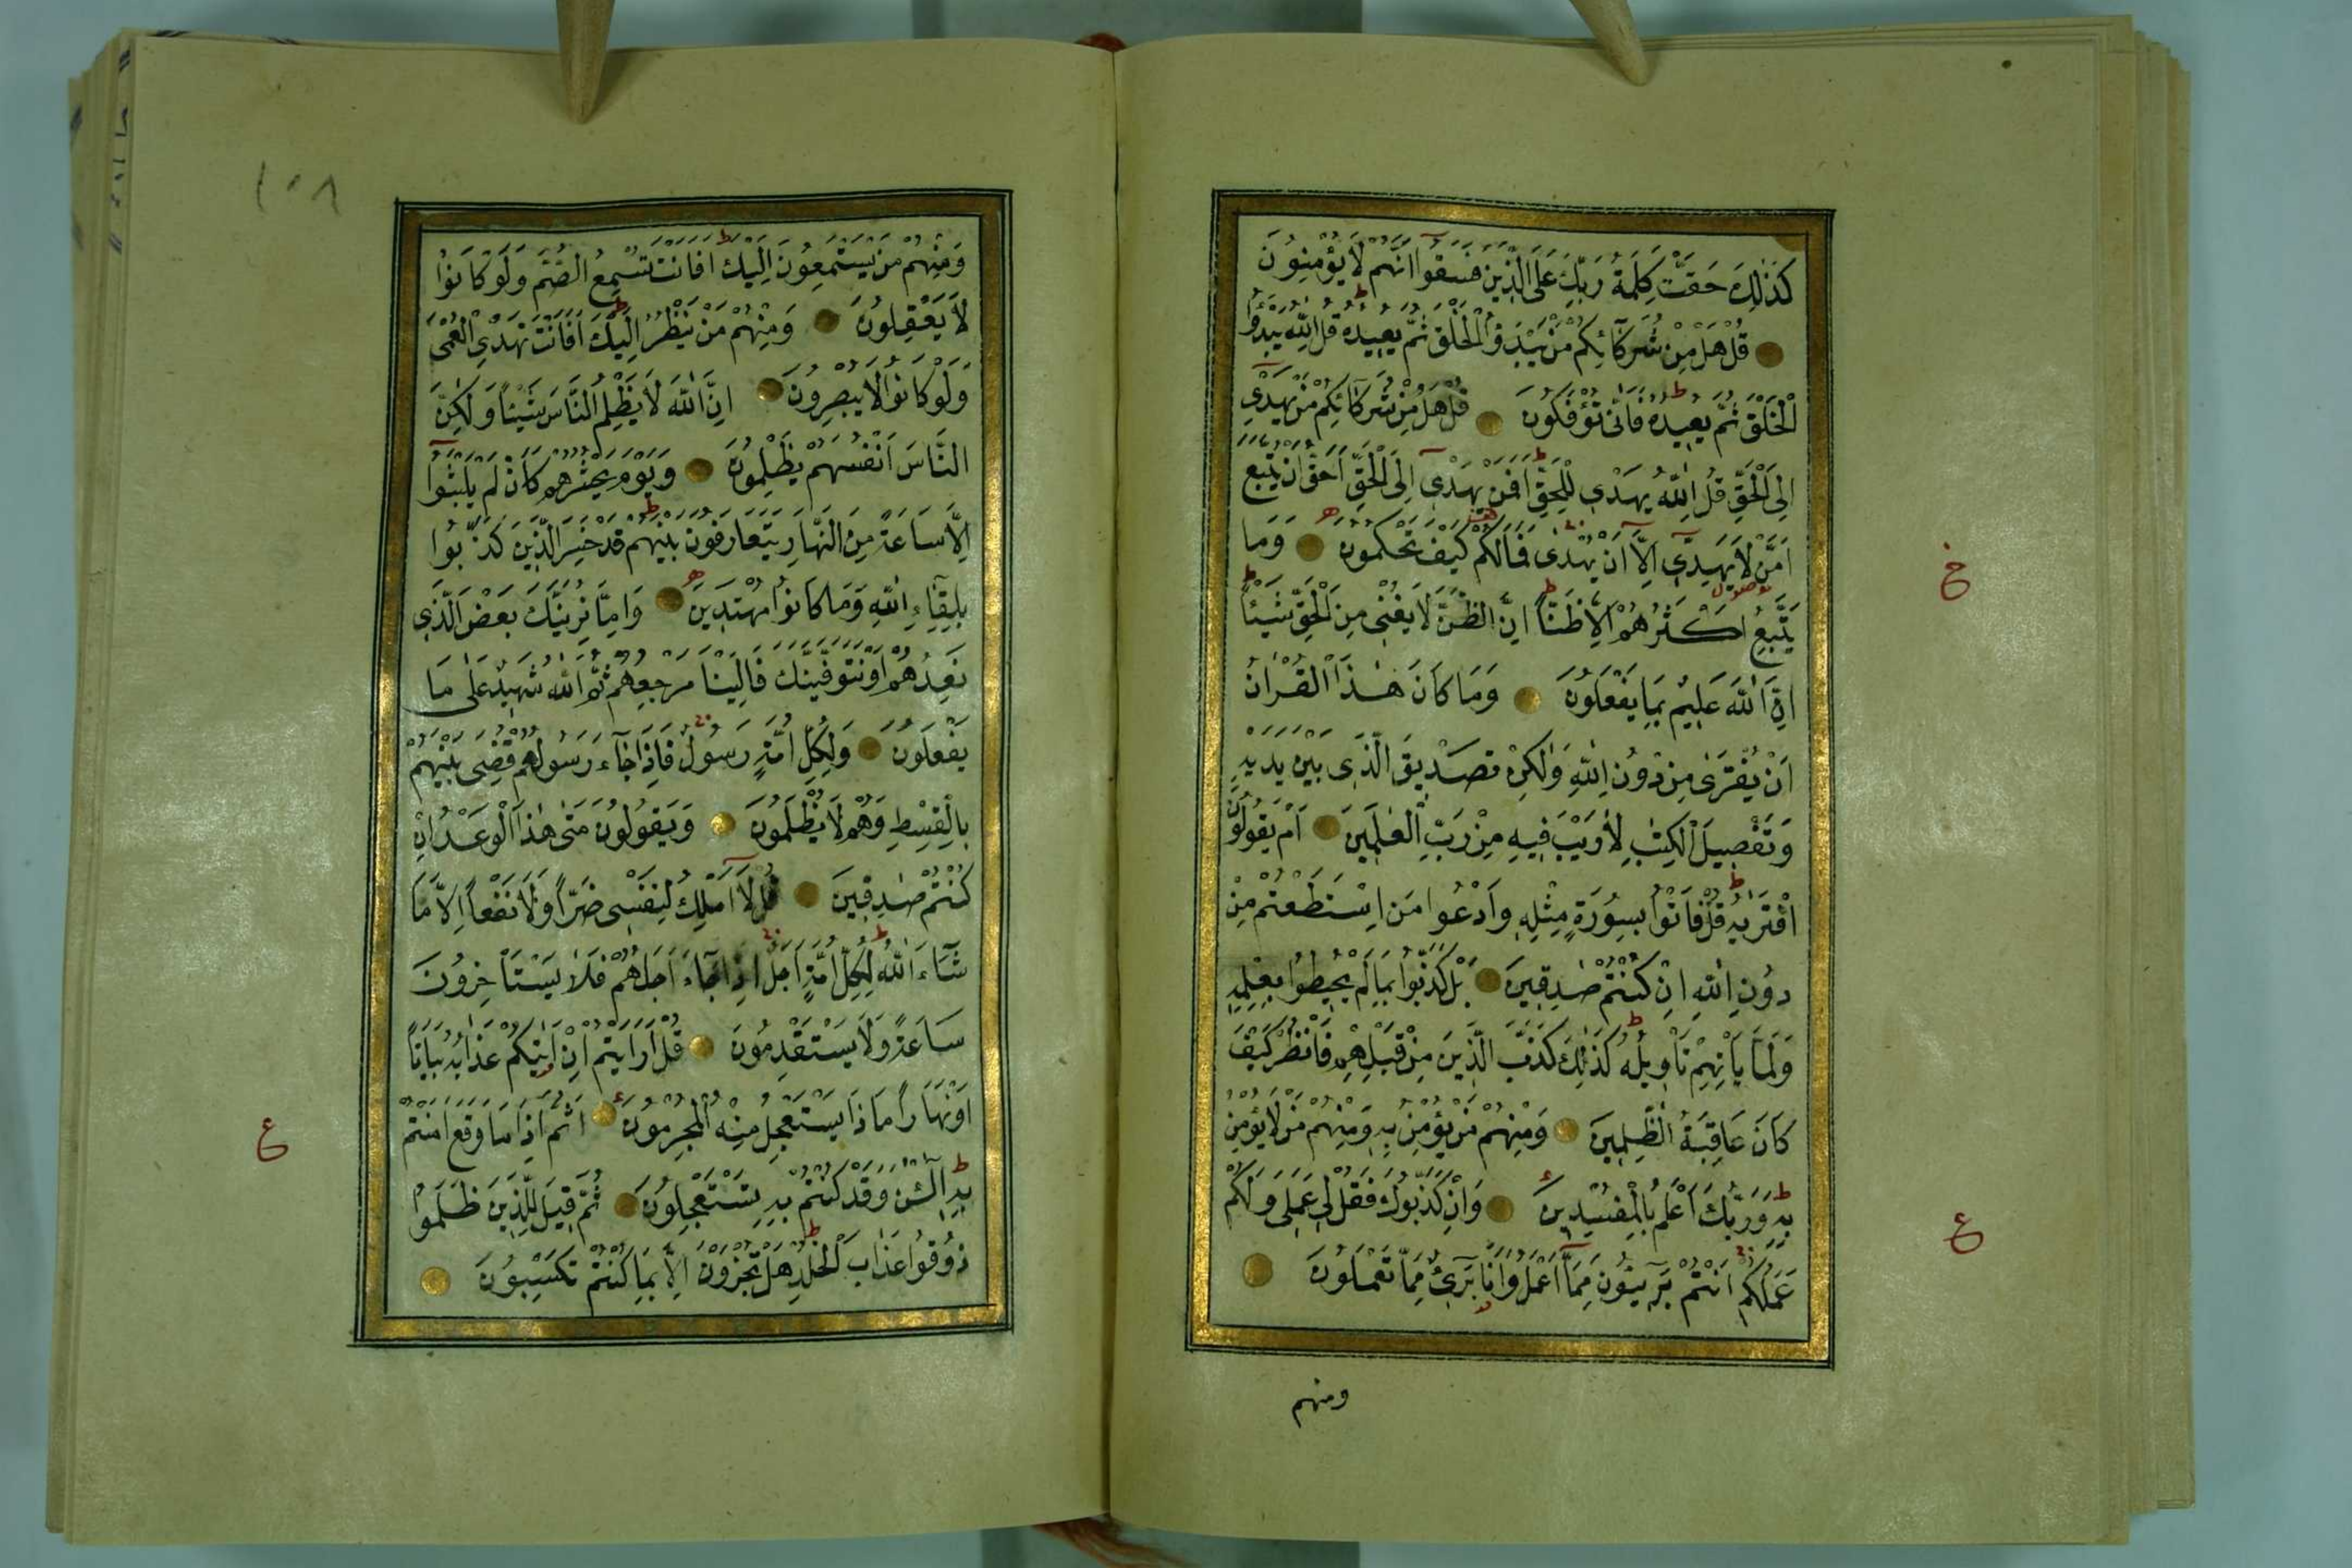 كَذٰلِكَ حَقَّتْ كَلِمَةُ رَبِّكَ عَلَى الَّذِينَ فَسَقُوا اَنَّهُمْ لَا يُؤْمِنُونَ
قُلْ هَلْ مِنْ شُرَكَآئِكُمْ مَنْ يَبْدَؤُ الْخَلْقَ ثُمَّ يُعِيدُهُ قُلِ اللّٰهُ يَبْدَؤُا
الْخَلْقَ ثُمَّ يُعِيدُهُ فَاَنّٰى تُؤْفَكُونَ قُلْ هَلْ مِنْ شُرَكَآئِكُمْ مَنْ يَهْدِٓي
اِلَى الْحَقِّ قُلِ اللّٰهُ يَهْدِي لِلْحَقِّ اَفَمَنْ يَهْدِٓي اِلَى الْحَقِّ اَحَقُّ اَنْ يُتَّبَعَ
اَمَّنْ لَا يَهِدِّٓي اِلَّٓا اَنْ يُهْدٰى فَمَالَكُمْ كَيْفَ تَحْكُمُونَ وَمَا
يَتَّبِعُ اَكْثَرُهُمْ اِلَّا ظَنًّا اِنَّ الظَّنَّ لَا يُغْنِي مِنَ الْحَقِّ شَيْئًا
اِنَّ اللّٰهَ عَلِيمٌ بِمَا يَفْعَلُونَ وَمَا كَانَ هٰذَا الْقُرْاٰنُ
اَنْ يُفْتَرٰى مِنْ دُونِ اللّٰهِ وَلٰكِنْ تَصْدِيقَ الَّذِي بَيْنَ يَدَيْهِ
وَتَفْصِيلَ الْكِتٰبِ لَا رَيْبَ فِيهِ مِنْ رَبِّ الْعٰلَمِينَ اَمْ يَقُولُونَ
افْتَرٰيهُ قُلْ فَاْتُوا بِسُورَةٍ مِثْلِهِ وَادْعُوا مَنِ اسْتَطَعْتُمْ مِنْ
دُونِ اللّٰهِ اِنْ كُنْتُمْ صٰدِقِينَ بَلْ كَذَّبُوا بِمَا لَمْ يُحِيطُوا بِعِلْمِهِ
وَلَمَّا يَاْتِهِمْ تَاْوِيلُهُ كَذٰلِكَ كَذَّبَ الَّذِينَ مِنْ قَبْلِهِمْ فَانْظُرْ كَيْفَ
كَانَ عَاقِبَةُ الظّٰلِمِينَ وَمِنْهُمْ مَنْ يُؤْمِنُ بِهِ وَمِنْهُمْ مَنْ لَا يُؤْمِنُ
بِهِ وَرَبُّكَ اَعْلَمُ بِالْمُفْسِدِينَ وَاِنْ كَذَّبُوكَ فَقُلْ لِي عَمَلِي وَلَكُمْ
عَمَلُكُمْ اَنْتُمْ بَرِٓيئُونَ مِمَّٓا اَعْمَلُ وَاَنَا بَرِٓيءٌ مِمَّا تَعْمَلُونَ
ومنهم
خ
ع
١٠٨
وَمِنْهُمْ مَنْ يَسْتَمِعُونَ اِلَيْكَ اَفَاَنْتَ تُسْمِعُ الصُّمَّ وَلَوْ كَانُوا
لَا يَعْقِلُونَ وَمِنْهُمْ مَنْ يَنْظُرُ اِلَيْكَ اَفَاَنْتَ تَهْدِي الْعُمْيَ
وَلَوْ كَانُوا لَا يُبْصِرُونَ اِنَّ اللّٰهَ لَا يَظْلِمُ النَّاسَ شَيْئًا وَلٰكِنَّ
النَّاسَ اَنْفُسَهُمْ يَظْلِمُونَ وَيَوْمَ يَحْشُرُهُمْ كَاَنْ لَمْ يَلْبَثُٓوا
اِلَّا سَاعَةً مِنَ النَّهَارِ يَتَعَارَفُونَ بَيْنَهُمْ قَدْ خَسِرَ الَّذِينَ كَذَّبُوا
بِلِقَٓاءِ اللّٰهِ وَمَا كَانُوا مُهْتَدِينَ وَاِمَّا نُرِيَنَّكَ بَعْضَ الَّذِي
نَعِدُهُمْ اَوْ نَتَوَفَّيَنَّكَ فَاِلَيْنَا مَرْجِعُهُمْ ثُمَّ اللّٰهُ شَهِيدٌ عَلٰى مَا
يَفْعَلُونَ وَلِكُلِّ اُمَّةٍ رَسُولٌ فَاِذَا جَٓاءَ رَسُولُهُمْ قُضِيَ بَيْنَهُمْ
بِالْقِسْطِ وَهُمْ لَا يُظْلَمُونَ وَيَقُولُونَ مَتٰى هٰذَا الْوَعْدُ اِنْ
كُنْتُمْ صٰدِقِينَ قُلْ لَٓا اَمْلِكُ لِنَفْسِي ضَرًّا وَلَا نَفْعًا اِلَّا مَا
شَٓاءَ اللّٰهُ لِكُلِّ اُمَّةٍ اَجَلٌ اِذَا جَٓاءَ اَجَلُهُمْ فَلَا يَسْتَاْخِرُونَ
سَاعَةً وَلَا يَسْتَقْدِمُونَ قُلْ اَرَاَيْتُمْ اِنْ اَتٰيكُمْ عَذَابُهُ بَيَاتًا
اَوْ نَهَارًا مَاذَا يَسْتَعْجِلُ مِنْهُ الْمُجْرِمُونَ اَثُمَّ اِذَا مَا وَقَعَ اٰمَنْتُمْ
بِهِ آٰلْئٰنَ وَقَدْ كُنْتُمْ بِهِ تَسْتَعْجِلُونَ ثُمَّ قِيلَ لِلَّذِينَ ظَلَمُوا
ذُوقُوا عَذَابَ الْخُلْدِ هَلْ تُجْزَوْنَ اِلَّا بِمَا كُنْتُمْ تَكْسِبُونَ
ع